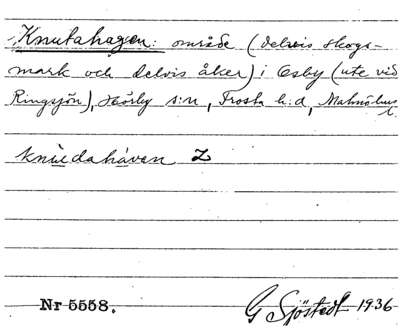 Knutahagen: område (delvis skogs-
mark och delvis åker) i Osby (ute vid
Ringsjön), Hörby s:n, Frosta h:d, Malmöhus
l.
knùdahàven Z
Nr 5558. G Sjöstedt 1936